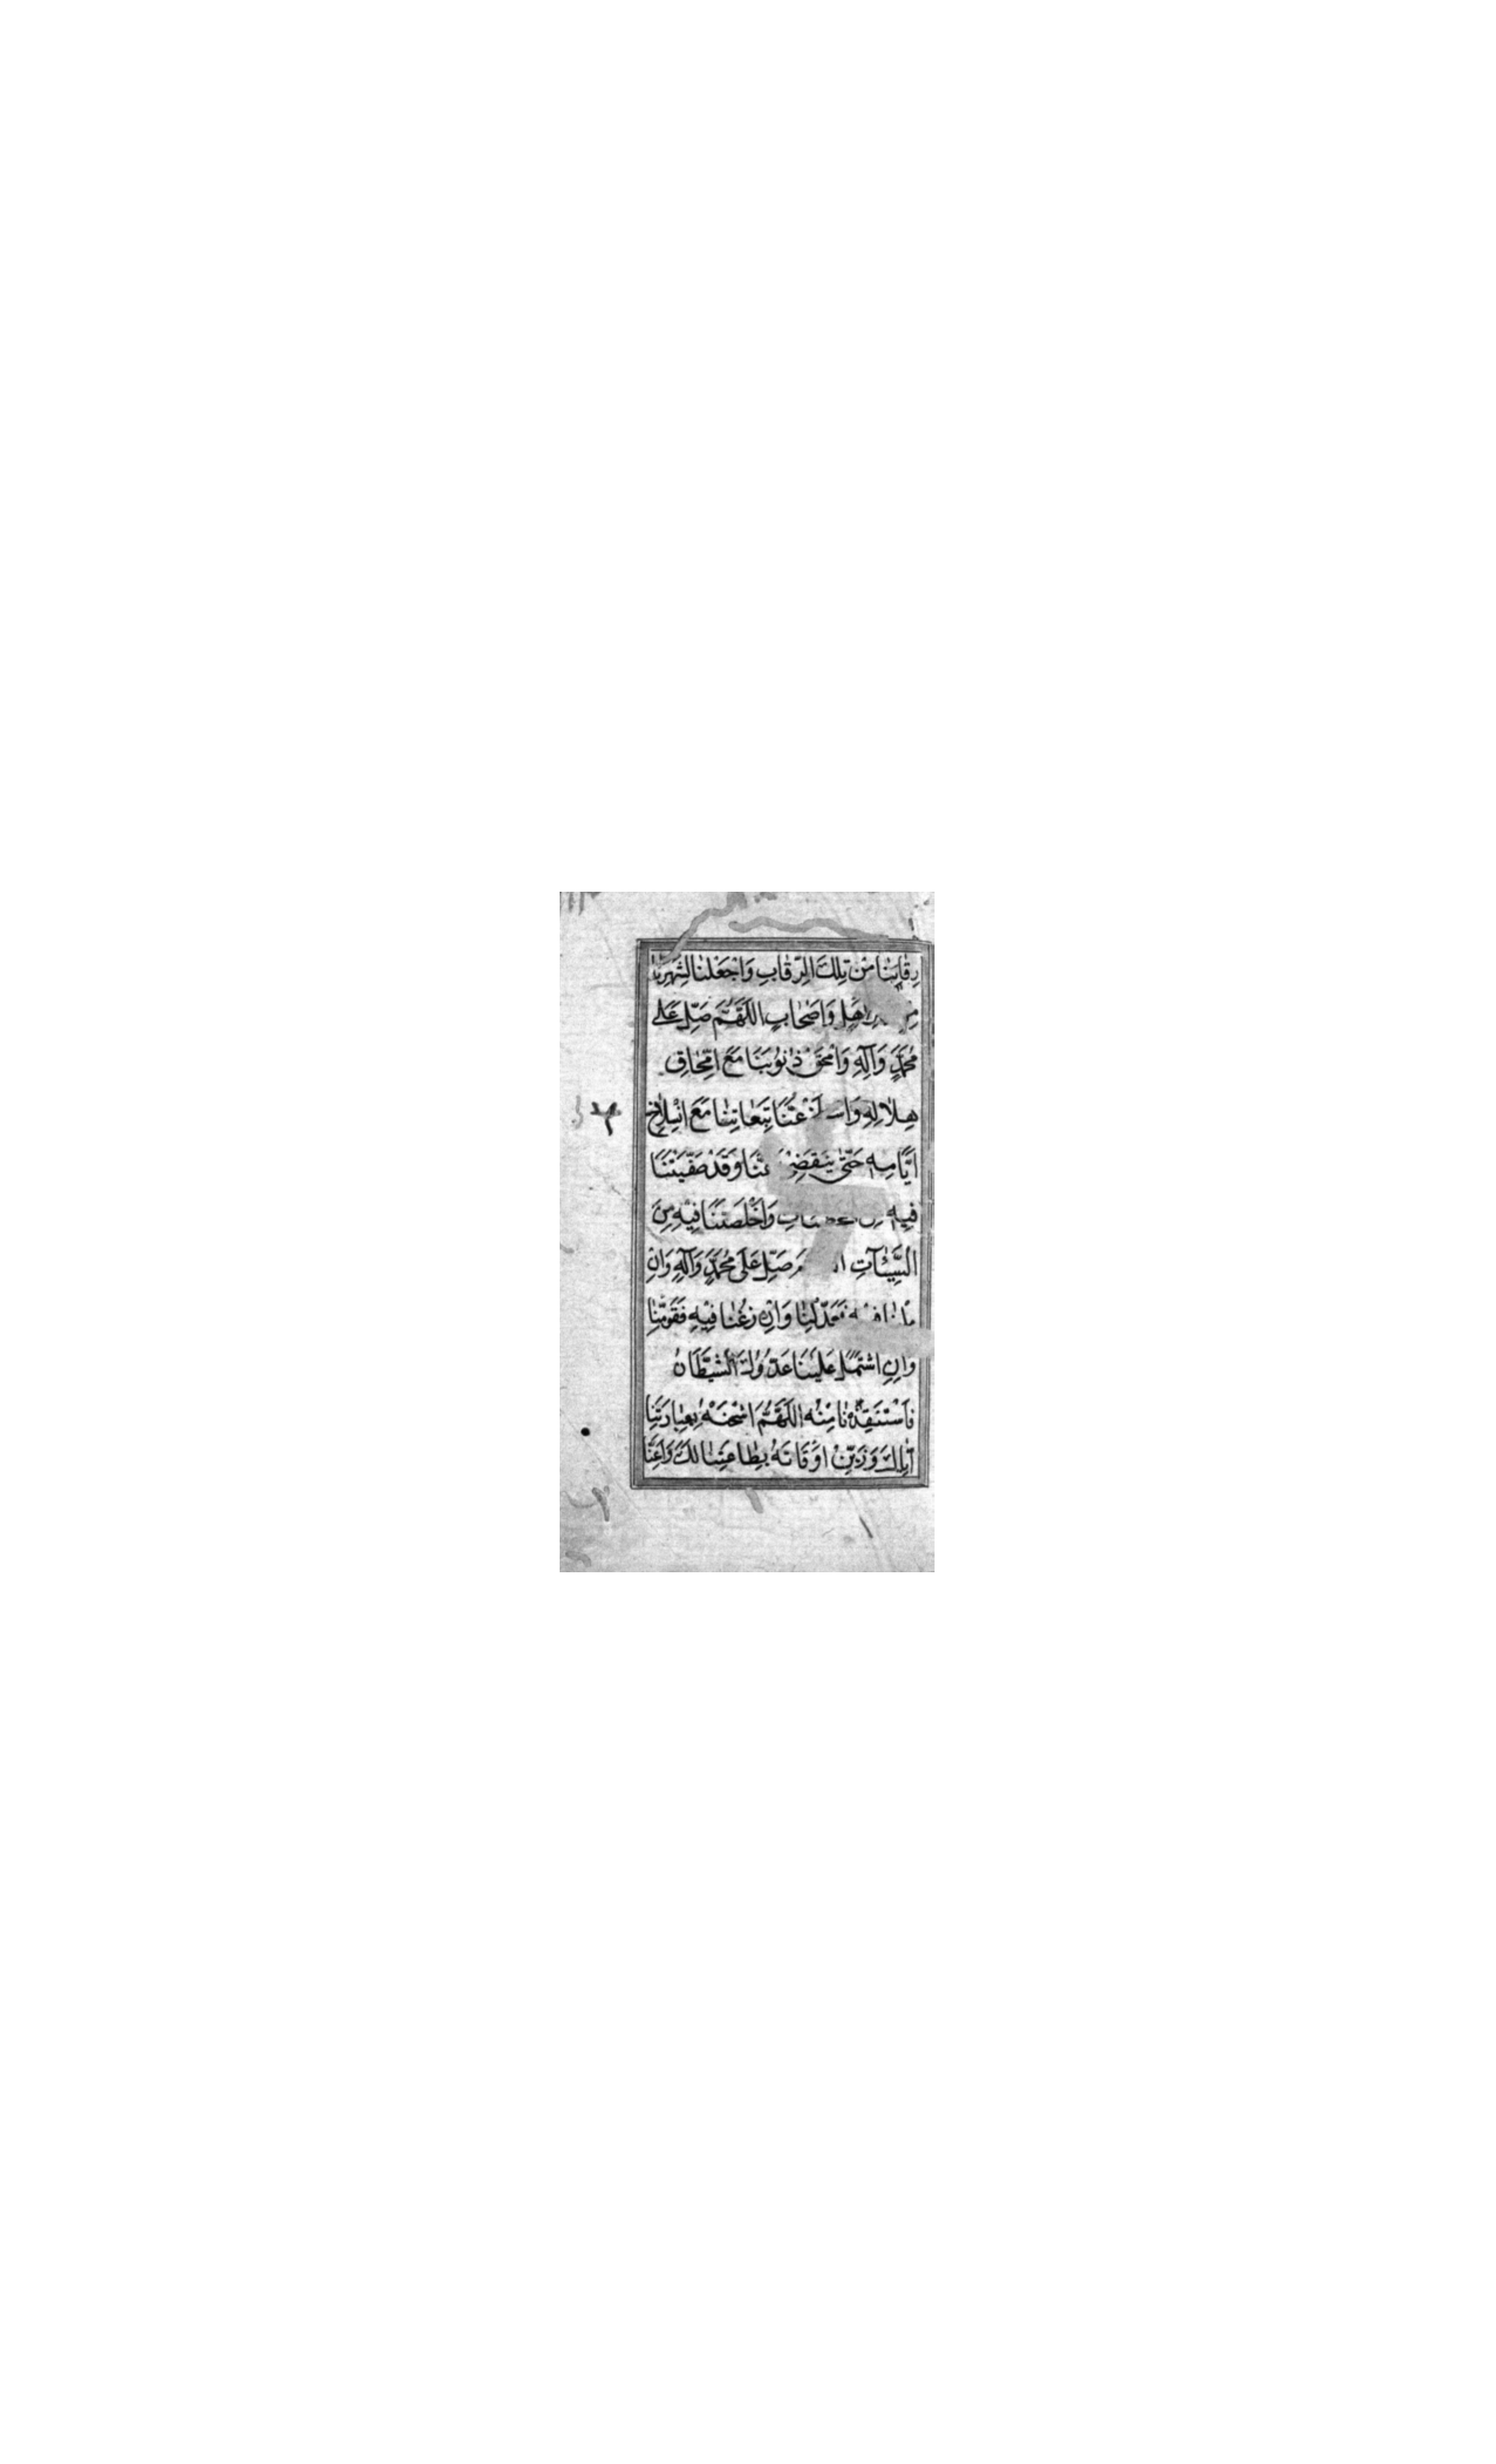 رِقَابَنَا مِنْ تِلْكَ الرِّقَابِ وَاجْعَلْنَا لِشَهْرِنَا
اَهْلٍ وَاَصْحَابٍ اَللّٰهُمَّ صَلِّ عَلٰى
مُحَمَّدٍ وَآلِهِ وَامْحَقْ ذُنُوبَنَا مَعَ امِّحَاقِ
هِلَالِهِ عَنَّا تَبِعَاتِنَا مَعَ انْسِلَاخِ
اَيَّامِهِ حَتّٰى يَنْقَضِيَ عَنَّا وَقَدْ صَفَّيْتَنَا
فِيهِ وَاَخْلَصْتَنَا فِيهِ مِنَ
السَّيِّئَاتِ صَلِّ عَلٰى مُحَمَّدٍ وَآلِهِ وَاِنْ
فَعَدِّلْنَا وَاِنْ زِغْنَا فِيهِ فَقَوِّمْنَا
وَاِنِ اشْتَمَلَ عَلَيْنَا عَدُوُّكَ الشَّيْطَانُ
فَاسْتَنْقِذْنَا مِنْهُ اَللّٰهُمَّ اشْحَنْهُ بِعِبَادَتِنَا
اِيَّاكَ وَزَيِّنْ اَوْقَاتَهُ بِطَاعَتِنَا لَكَ وَاَعِنَّا